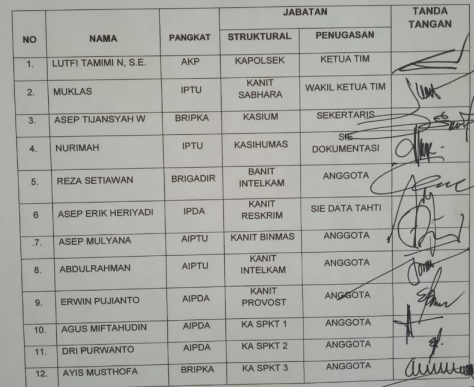 NO NAMA PANGKAT JABATAN TANDA TANGAN
STRUKTURAL PENUGASAN
1. LUTFI TAMIMI N, S.E. AKP KAPOLSEK KETUA TIM
2. MUKLAS IPTU KANIT SABHARA WAKIL KETUA TIM
3. ASEP TIJANSYAH W BRIPKA KASIUM SEKERTARIS
4. NURIMAH IPTU KASIHUMAS SIE DOKUMENTASI
5. REZA SETIAWAN BRIGADIR BANIT INTELKAM ANGGOTA
6 ASEP ERIK HERIYADI IPDA KANIT RESKRIM SIE DATA TAHTI
.7. ASEP MULYANA AIPTU KANIT BINMAS ANGGOTA
8. ABDULRAHMAN AIPTU KANIT INTELKAM ANGGOTA
9. ERWIN PUJIANTO AIPDA KANIT PROVOST ANGGOTA
10. AGUS MIFTAHUDIN AIPDA KA SPKT 1 ANGGOTA
11. DRI PURWANTO AIPDA KA SPKT 2 ANGGOTA
12. AYIS MUSTHOFA BRIPKA KA SPKT 3 ANGGOTA